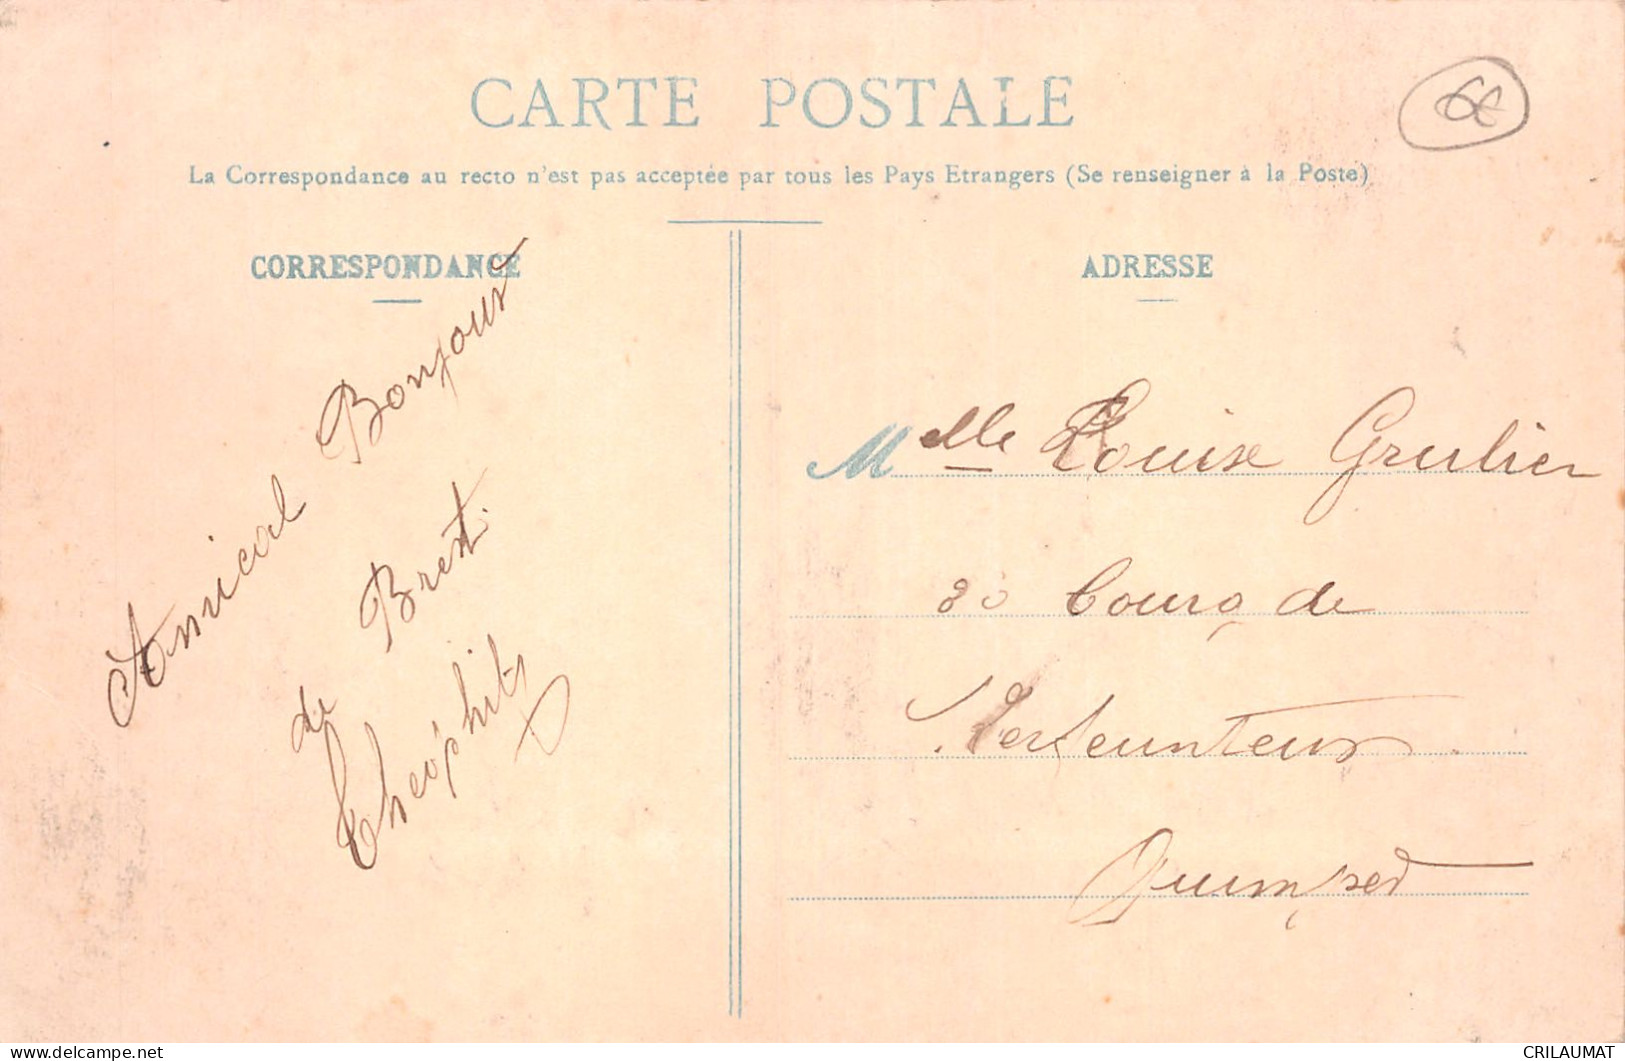 CARTE POSTALE
6€
La Correspondance au recto n'est pas acceptée par tous les Pays Etrangers (Se renseigner à la Poste)
CORRESPONDANCE
Amical Bonjour
de Brest.
Théophile
ADRESSE
Melle Louise Grulier
30 Bourg de
Quimper
delcampe.net
CRILAUMAT